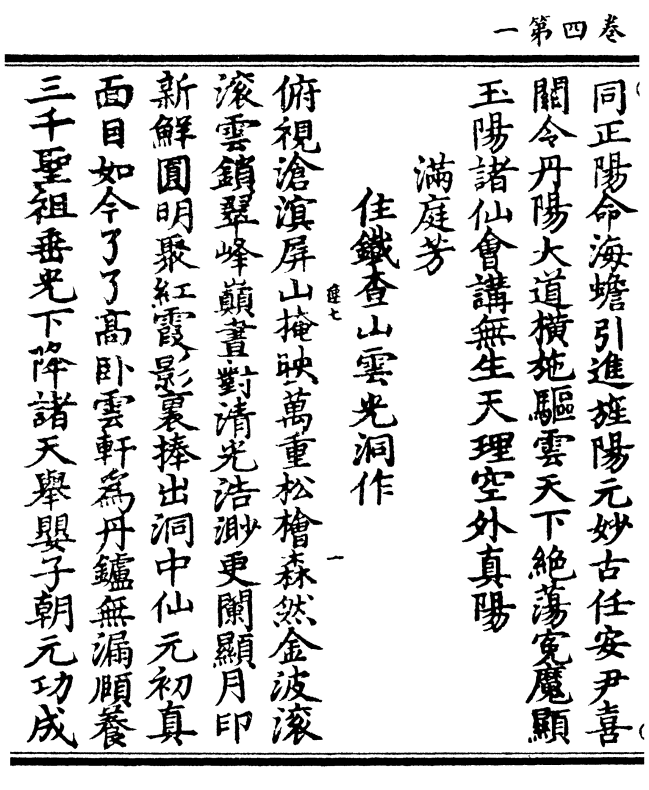 卷四第一
同正陽命海蟾引進旌陽元妙古任安尹喜
關令丹陽大道橫施驅雲天下絕蕩寃魔顯
玉陽諸仙會講無生天理空外真陽
滿庭芳
住鐵查山雲光洞作
俯視滄溟屏山掩映萬重松檜森然金波滚
滚雲鎖翠峰巔晝對清光浩渺更闌顯月印
新鮮圓明聚紅霞影裏捧出洞中仙元初真
面目如今了了高卧雲軒為丹鑪無漏頤養
三千聖祖垂光下降諸天舉嬰子朝元功成